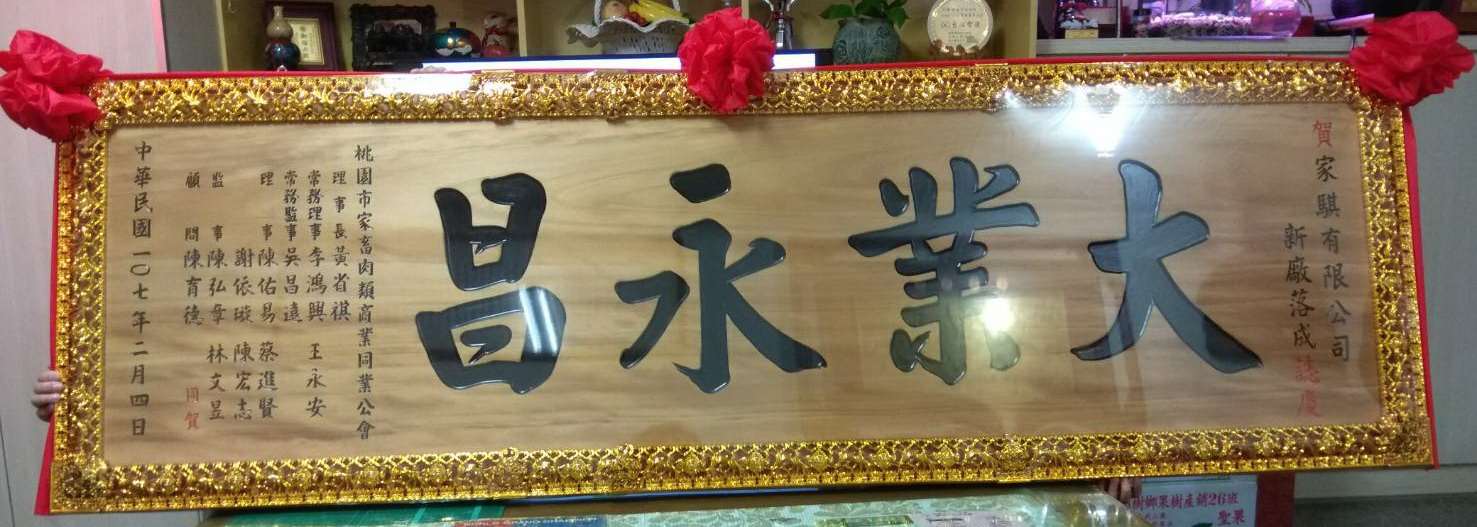 賀家騏有限公司
新廠落成誌慶
大業永昌
桃園市家畜肉類商業同業公會
理事長黃省祺
常務理事李鴻興 王永安
常務監事吳昌遠
理事陳佑易 蔡進賢
謝依璇 陳宏志
監事陳弘章 林文昱
顧問陳育德 同賀
中華民國一〇七年二月四日
樹鄉果樹產銷26班
聖果